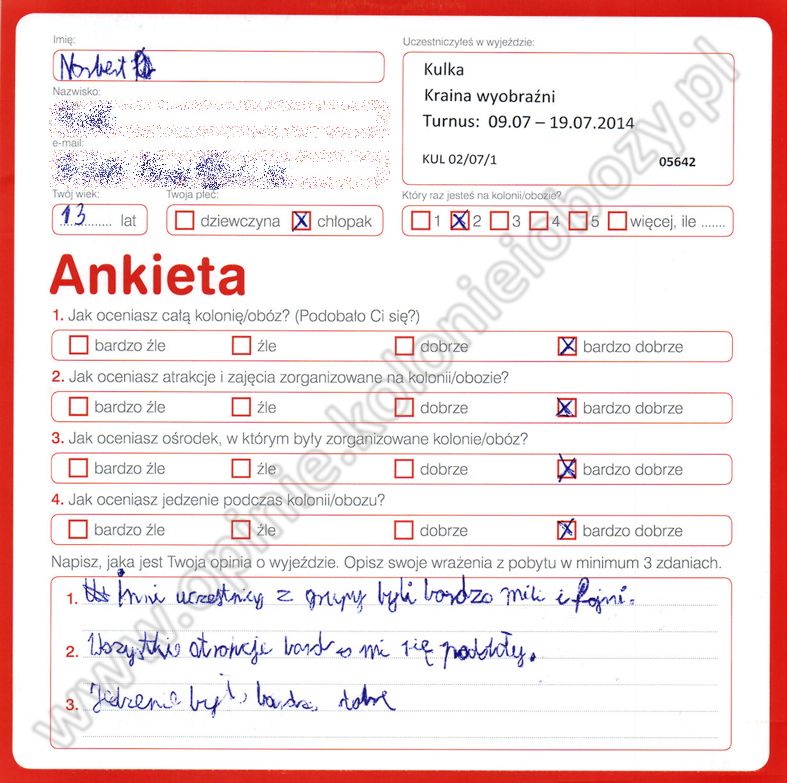 Imię:
Norbert
Nazwisko:
e-mail:
Twój wiek:
13 lat
Twoja płeć:
dziewczyna chłopak
Uczestniczyłeś w wyjeździe:
Kulka
Kraina wyobraźni
Turnus: 09.07 – 19.07.2014
KUL 02/07/1 05642
Który raz jesteś na kolonii/obozie?
1 2 3 4 5 więcej, ile .......
Ankieta
1. Jak oceniasz całą kolonię/obóz? (Podobało Ci się?)
bardzo źle źle dobrze bardzo dobrze
2. Jak oceniasz atrakcje i zajęcia zorganizowane na kolonii/obozie?
bardzo źle źle dobrze bardzo dobrze
3. Jak oceniasz ośrodek, w którym były zorganizowane kolonie/obóz?
bardzo źle źle dobrze bardzo dobrze
4. Jak oceniasz jedzenie podczas kolonii/obozu?
bardzo źle źle dobrze bardzo dobrze
Napisz, jaka jest Twoja opinia o wyjeździe. Opisz swoje wrażenia z pobytu w minimum 3 zdaniach.
1. Inni uczestnicy z grupy byli bardzo mili i fajni.
2. Wszystkie atrakcje bardzo mi się podobały.
3. Jedzenie było bardzo dobre
www.opinie.kolonieiobozy.pl